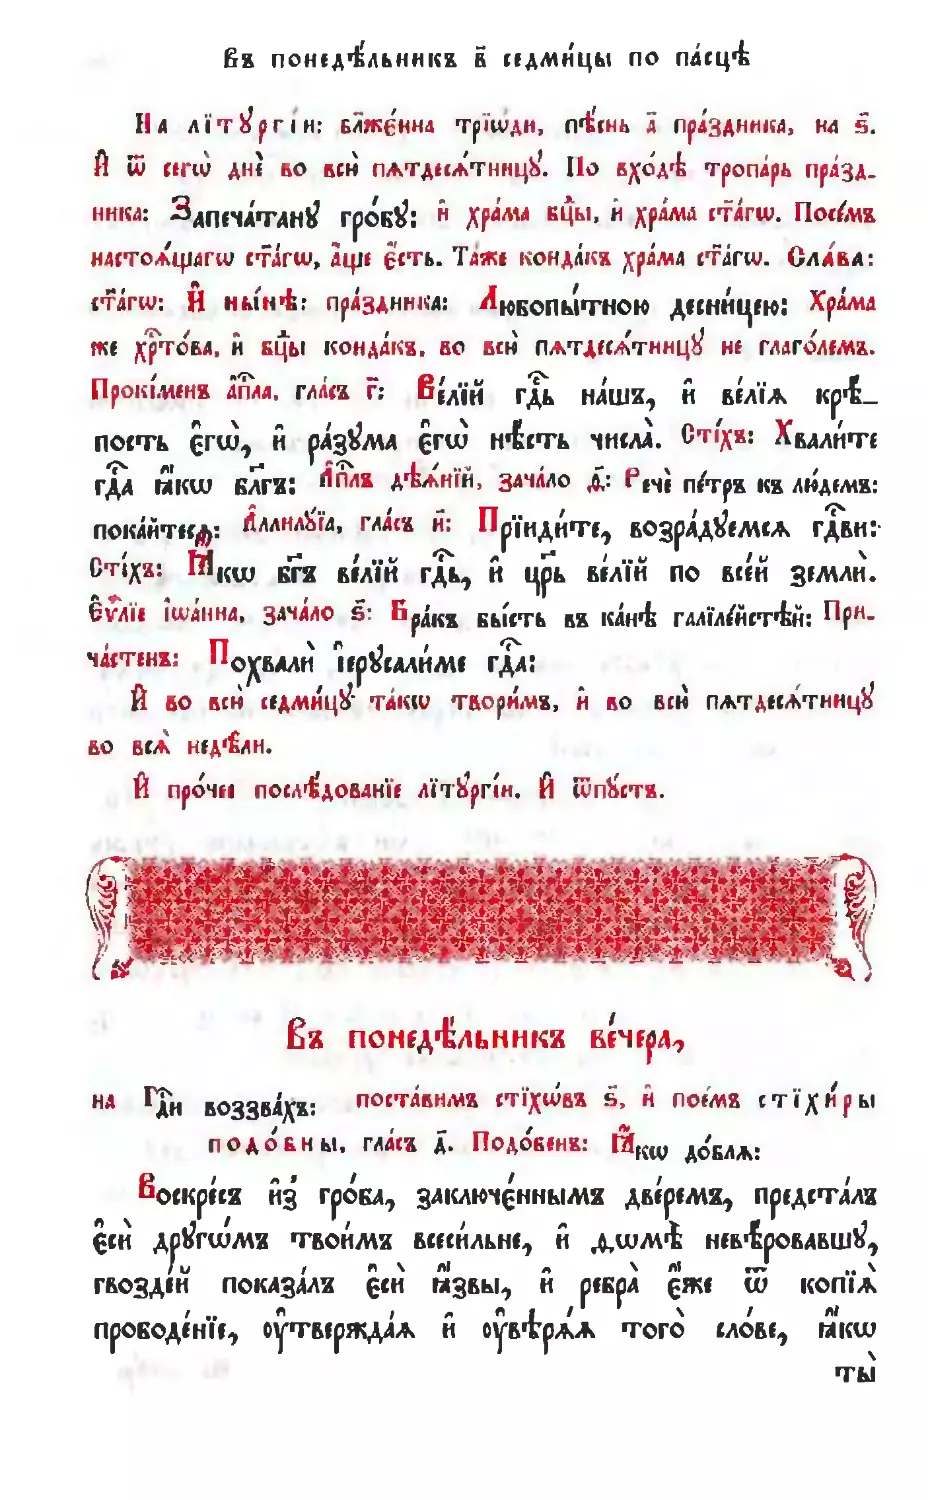 Въ понедѣ́льникъ в҃ седми́цы по па́сцѣ
На лїтꙋргі́и: бл҃жє́нна трїѡ́ди, пѣ́снь а҃ пра́здника, на ѕ҃.
И҆ ѿ сегѡ̀ днѐ во всю̀ пѧтдесѧ́тницꙋ. По вхо́дѣ тропа́рь пра́зд-
ника: Запеча́танꙋ гро́бꙋ: и҆ хра́ма бц҃ы, и҆ хра́ма ст҃а́гѡ. Посе́мъ
настоѧ́щагѡ ст҃а́гѡ, а҆́ще є҆́сть. Та́же конда́къ хра́ма ст҃а́гѡ. Сла́ва:
ст҃а́гѡ: И҆ ны́нѣ: пра́здника: Любопы́тною десни́цею: Хра́ма
же хрⷭ҇то́ва, и҆ бц҃ы конда́къ, во всю̀ пѧтдесѧ́тницꙋ не глаго́лемъ.
Прокі́менъ а҆пⷭ҇ла, гла́съ г҃: Ве́лїй гдⷭ҇ь на́шъ, и҆ ве́лїѧ крѣ́-
пость є҆гѡ̀, и҆ ра́зꙋма є҆гѡ̀ нѣ́сть числа̀. Сті́хъ: Хвали́те
гдⷭ҇а ꙗ҆́кѡ бл҃гъ: А҆пⷭ҇лъ дѣѧ́нїй, зача́ло д҃: Речѐ пе́тръ къ лю́демъ:
пока́йтесѧ: А҆ллилꙋ́їа, гла́съ и҃: Прїиди́те, возра́дꙋемсѧ гдⷭ҇ви:
Сті́хъ: Ꙗ҆́кѡ бг҃ъ ве́лїй гдⷭ҇ь, и҆ цр҃ь ве́лїй по все́й землѝ.
Є҆ѵⷢ҇лїе і҆ѡа́нна, зача́ло ѕ҃: Бра́къ бы́сть въ ка́нѣ галїле́йстѣй: При-
ча́стенъ: Похвалѝ і҆ерⷭ҇ꙋсали́ме гдⷭ҇а:
И҆ во всю̀ седми́цꙋ та́кѡ твори́мъ, и҆ во всю̀ пѧтдесѧ́тницꙋ
во всѧ̀ недѣ́ли.
И҆ про́чее послѣ́дованїе лїтꙋргі́и. И҆ ѿпꙋ́стъ.
Въ понедѣ́льникъ ве́чера,
на Гдⷭ҇и воззва́хъ: поста́вимъ стїхѡ́въ ѕ҃, и҆ пое́мъ стїхи̑ры
подо́бны, гла́съ д҃. Подо́бенъ: Ꙗ҆́кѡ до́блѧ:
Воскре́съ и҆з̾ гро́ба, заключє́ннымъ две́ремъ, предста́лъ
є҆сѝ дрꙋгѡ́мъ твои̑мъ всеси́льне, и҆ ѳѡмѣ̀ невѣ́ровавшꙋ,
гвозде́й показа́лъ є҆сѝ ꙗ҆́звы, и҆ ребра̀ є҆́же ѿ копїѧ̀
прободе́нїе, ᲂу҆твержда́ѧ и҆ ᲂу҆вѣ́рѧѧ того̀ сло́ве, ꙗ҆́кѡ
ты̀